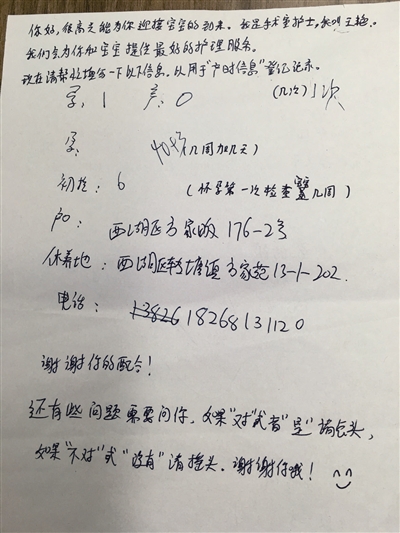 你好，很高兴能为你迎接宝宝的到来。我是手术室护士，我叫王艳。
我们会为你和宝宝提供最好的护理服务。
现在请帮忙填写一下以下信息，以用于"产时信息"登记记录。
孕：1 产：0 (几次) 1次
孕： 40+3(几周加几天)
初检：6 (怀孕第一次检查是几周)
户口： 西湖区方家畈176-2号
休养地：西湖区转塘镇方家苑13-1-202.
电话： 13826 18268131120
谢谢你的配合！
还有些问题需要问你，如果"对"或者"是"请点头，
如果"不对"或"没有"请摇头。谢谢你哦！